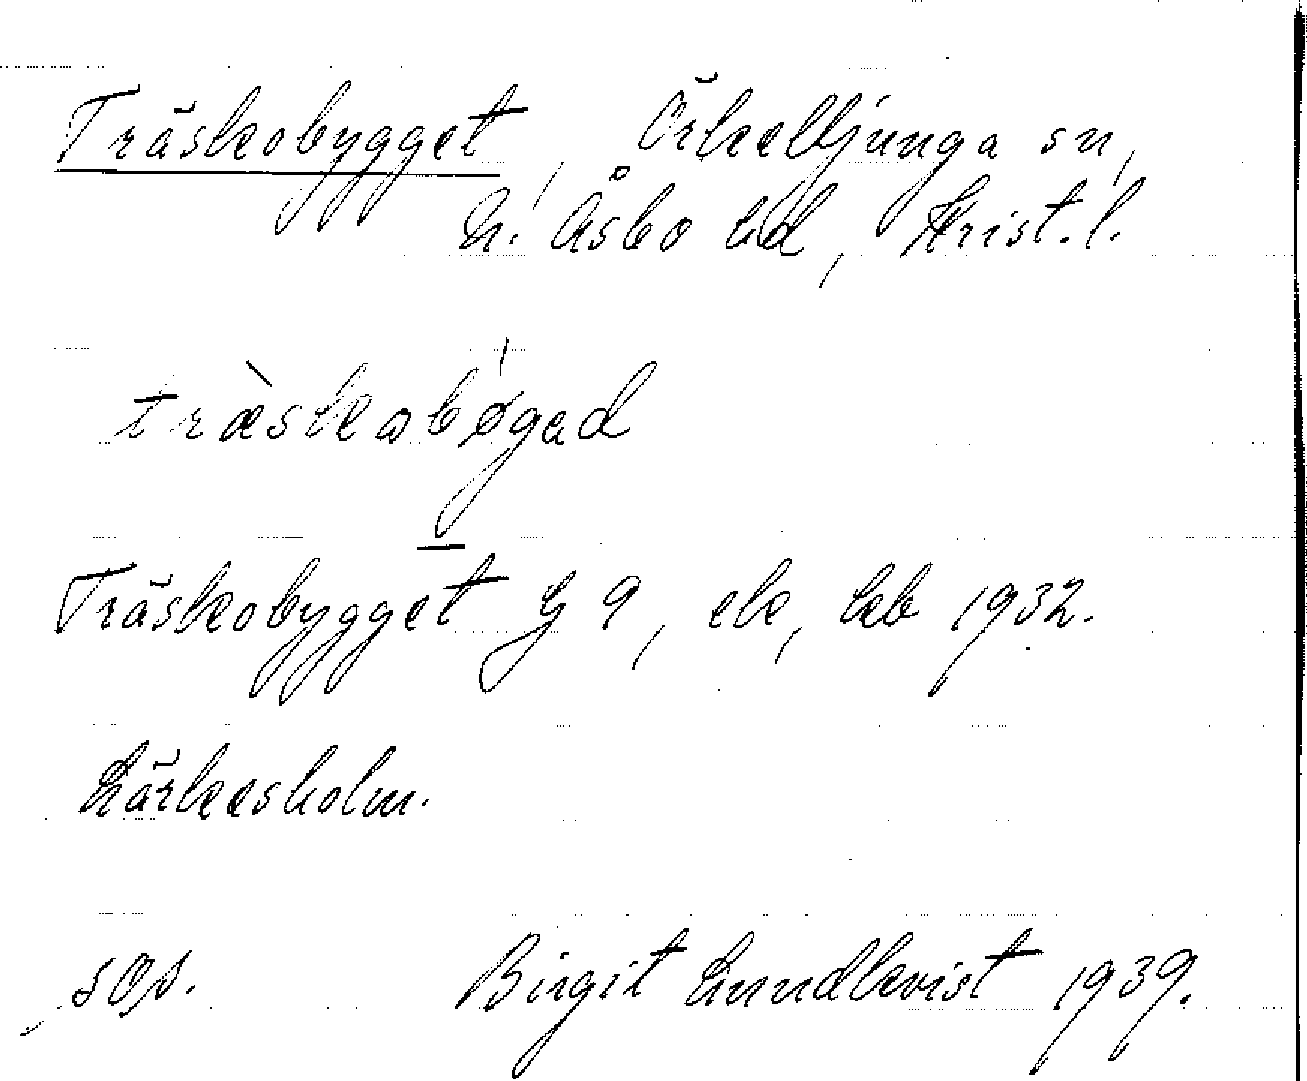 Träskobygget, Örkelljunga sn,
N. Åsbo hd, Krist. l.
træ̀skobø̍gad
Träskobygget G 9, ek, kb 1932.
Lärkesholm.
sOp. Birgit Lundkvist 1939.